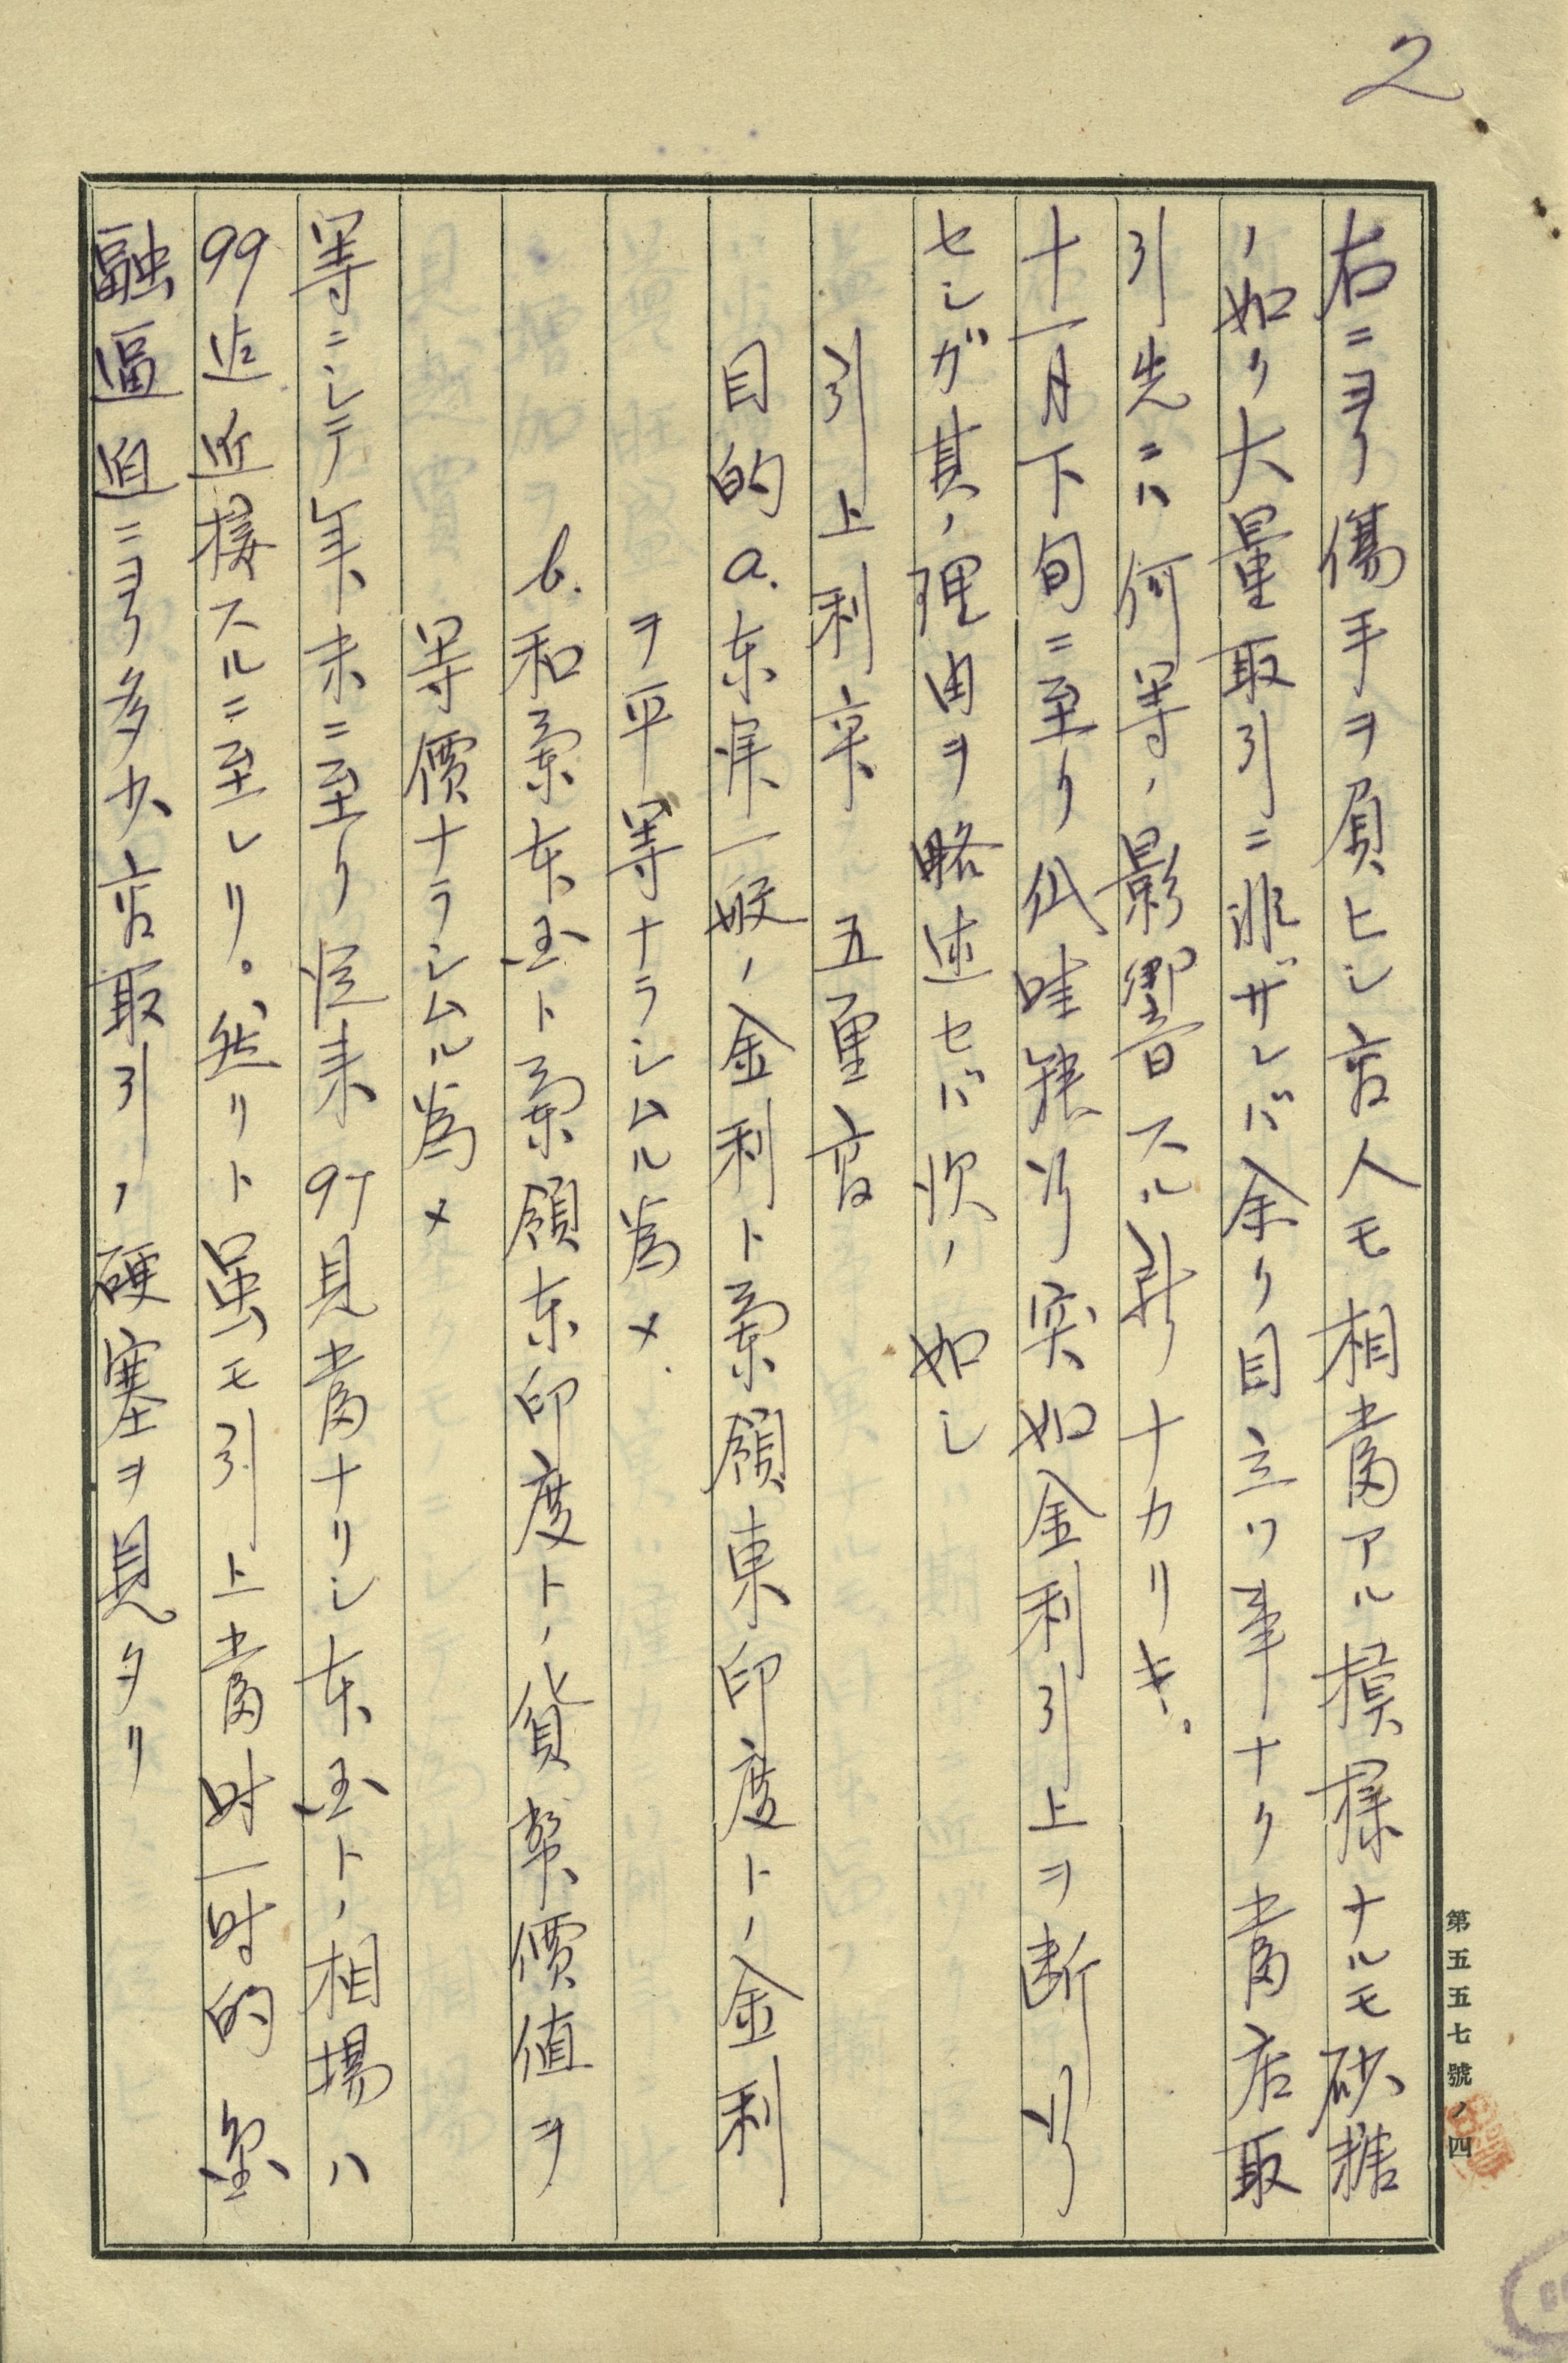 2
右ニヨリ傷手ヲ負ヒシ商人モ相當アル模様ナルモ砂糖
ノ如ク大量取引ニ非ザレバ余リ目立ツ事ナク當店取
引先ニハ何等ノ影響スル所ナカリキ。
十一月下旬ニ至リ爪哇銀行突如金利引上ヲ断行
センガ其ノ理由ヲ略述セバ次ノ如シ
引上利率 五厘高
目的 a. 东洋一般ノ金利ト蘭領東印度トノ金利
ヲ平等ナラシムル為メ.
b. 和蘭本国ト蘭領东印度トノ貨幣價値ヲ
等價ナラシムル為メ
等ニシテ年末ニ至リ従来97見當ナリシ本国トノ相場ハ
99迄近接スルニ至レリ。然リト虽モ引上當时一时的金
融逼迫ニヨリ多少商取引ノ硬塞ヲ見タリ
第五五七號ノ四